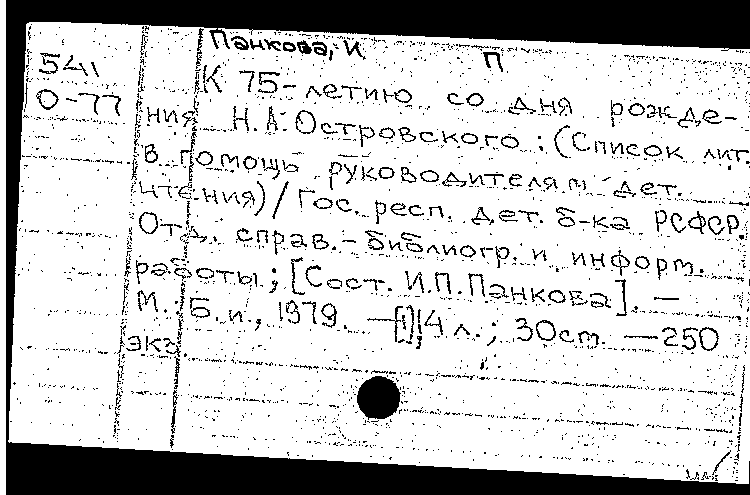 Панкова, И.
П
541
О-77
К 75-летию со дня рожде-
ния Н.А. Островского : (Список лит.
в помощь руководителям дет.
чтения) / Гос. респ. дет. б-ка РСФСР.
Отд. справ.-библиогр. и информ.
работы ; [Сост. И.П. Панкова]. —
М. : Б. и., 1979. — [1], 14 л. ; 30 см. — 250
экз.